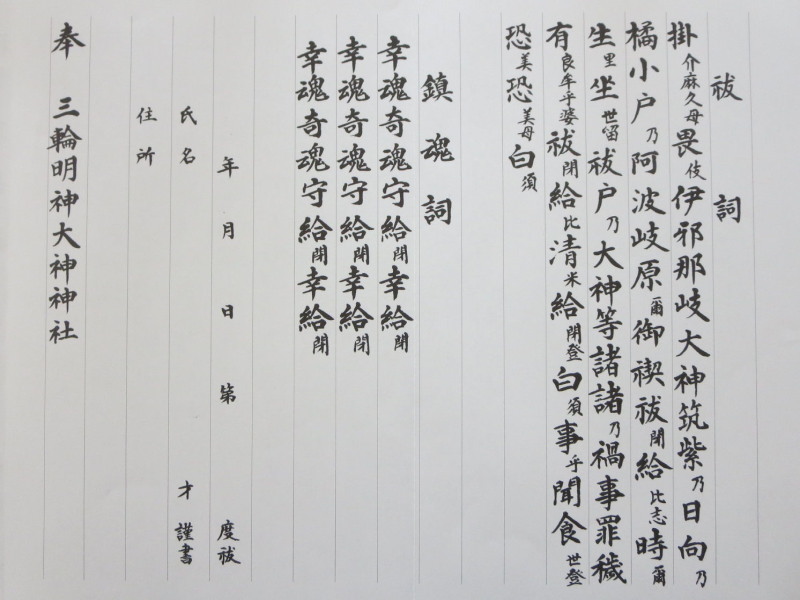 祓詞
掛介麻久母畏伎伊邪那岐大神筑紫乃日向乃
橘小戸乃阿波岐原爾御禊祓閉給比志時爾
生里坐世留祓戸乃大神等諸諸乃禍事罪穢
有良牟乎婆祓閉給比清米給閉登白須事乎聞食世登
恐美恐美母白須
鎮魂詞
幸魂奇魂守給閉幸給閉
幸魂奇魂守給閉幸給閉
幸魂奇魂守給閉幸給閉
年月日第度祓
氏名才謹書
住所
奉 三輪明神大神神社